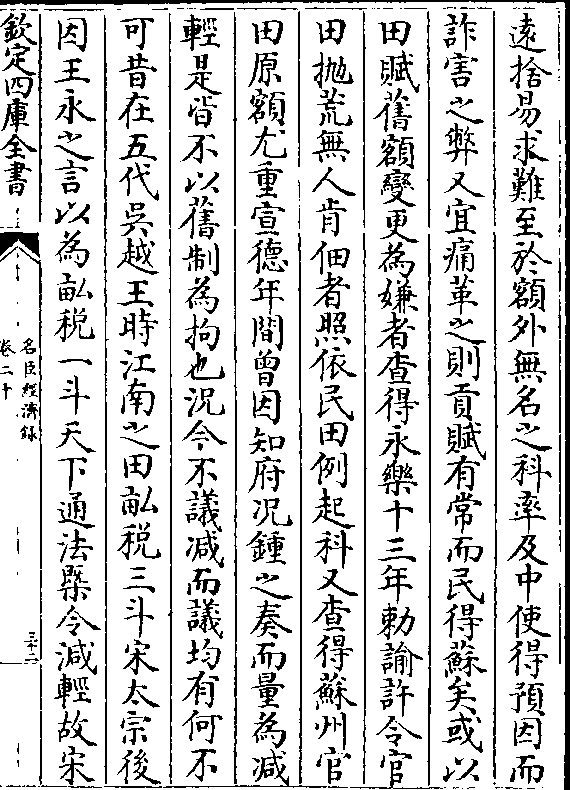 逺捨易求難至於額外無名之科率及中使得預因而
詐害之弊又宜痛革之則貢賦有常而民得蘇矣或以
田賦舊額變更為嫌者查得永樂十三年勅諭許令官
田拋荒無人肯佃者照依民田例起科又查得蘇州官
田原額尤重宣德年間曾因知府况鍾之奏而量為减
輕是皆不以舊制為拘也况今不議减而議均有何不
可昔在五代吳越王時江南之田畝税三斗宋太宗後
因王永之言以為畝税一斗天下通法槩令減輕故宋
欽定四庫全書
名臣經濟録
卷二十
三十二